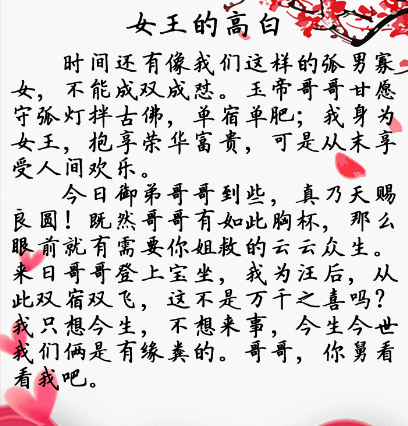 女王的高白
时间还有像我们这样的孤男寡
女，不能成双成怼。玉帝哥哥甘愿
守弧灯拌古佛，单宿单肥；我身为
女王，抱享荣华富贵，可是从末享
受人间欢乐。
今日御弟哥哥到些，真乃天赐
良圆！既然哥哥有如此胸杯，那么
眼前就有需要你姐救的云云众生。
来日哥哥登上宝坐，我为汪后，从
此双宿双飞，这不是万千之喜吗？
我只想今生，不想来事，今生今世
我们俩是有缘粪的。哥哥，你舅看
看我吧。